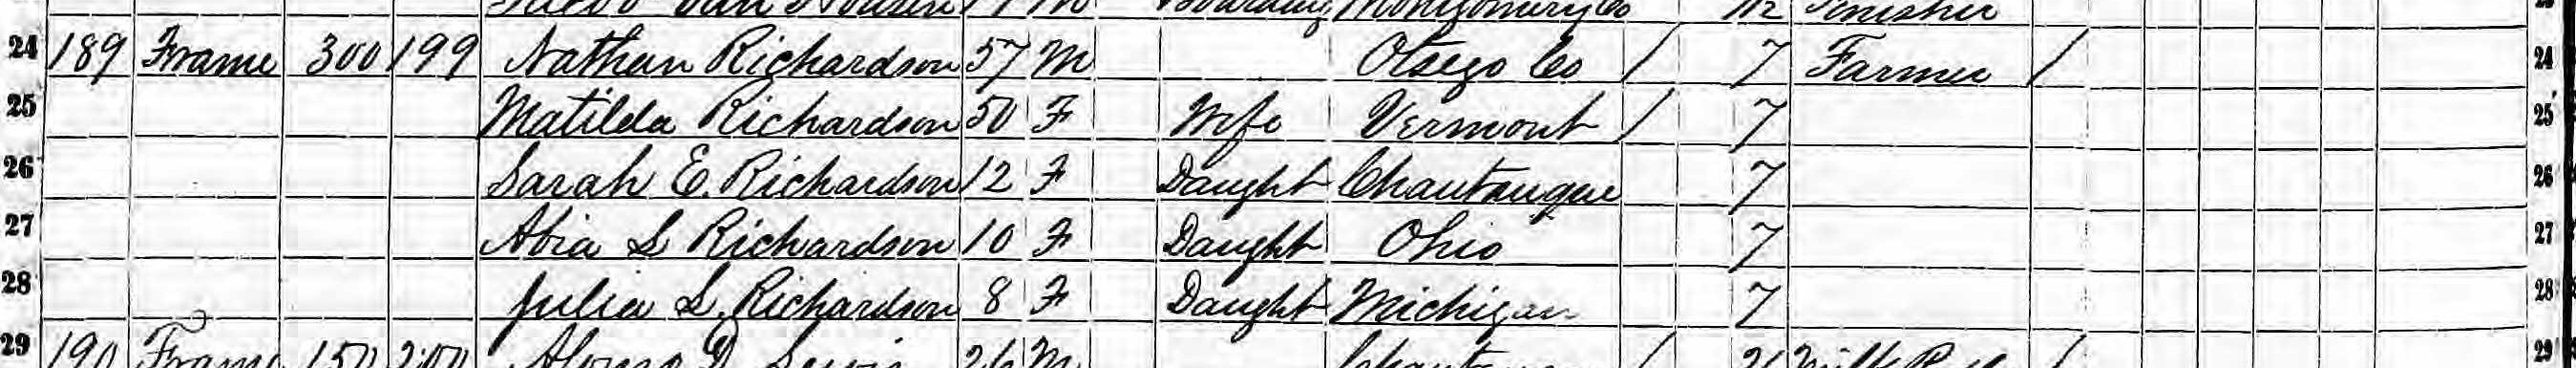 Boarding Montgomery Co 1/12 Finisher
24 189 Frame 300 199 Nathan Richardson 57 M Otsego Co / 7 Farmer / 24
25 Matilda Richardson 50 F Wife Vermont / 7 25
26 Sarah E. Richardson 12 F Daught Chautauque 7 26
27 Abia L Richardson 10 F Daught Ohio 7 27
28 Julia L. Richardson 8 F Daught Michigan 7 28
29 190 Frame 150 200 Alonzo D Lewis 26 M / / 29